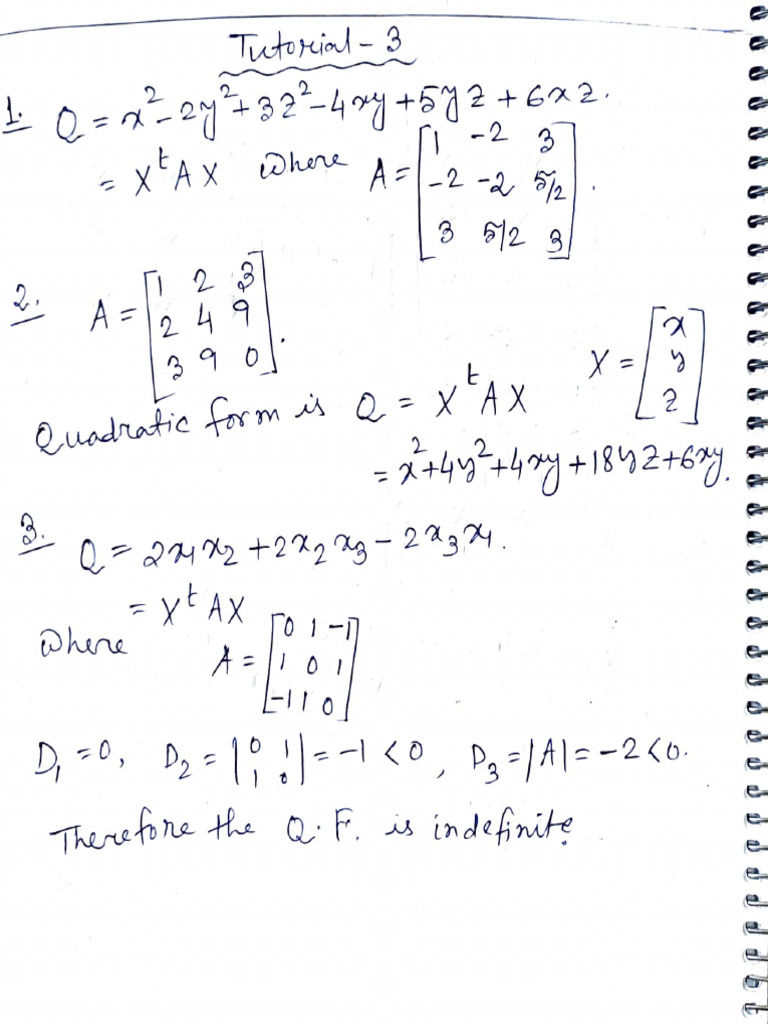 Tutorial - 3
1. Q = x² - 2y² + 3z² - 4xy + 5yz + 6xz.
= XᵗAX where A = [1 -2 3
-2 -2 5/2
3 5/2 3].
2. A = [1 2 3
2 4 9
3 9 0].
X = [x
y
z]
Quadratic form is Q = XᵗAX
= x² + 4y² + 4xy + 18yz + 6xy.
3. Q = 2x₁x₂ + 2x₂x₃ - 2x₃x₁.
= XᵗAX
where A = [0 1 -1
1 0 1
-1 1 0]
D₁ = 0, D₂ = |0 1
1 0| = -1 < 0, D₃ = |A| = -2 < 0.
Therefore the Q.F. is indefinite.